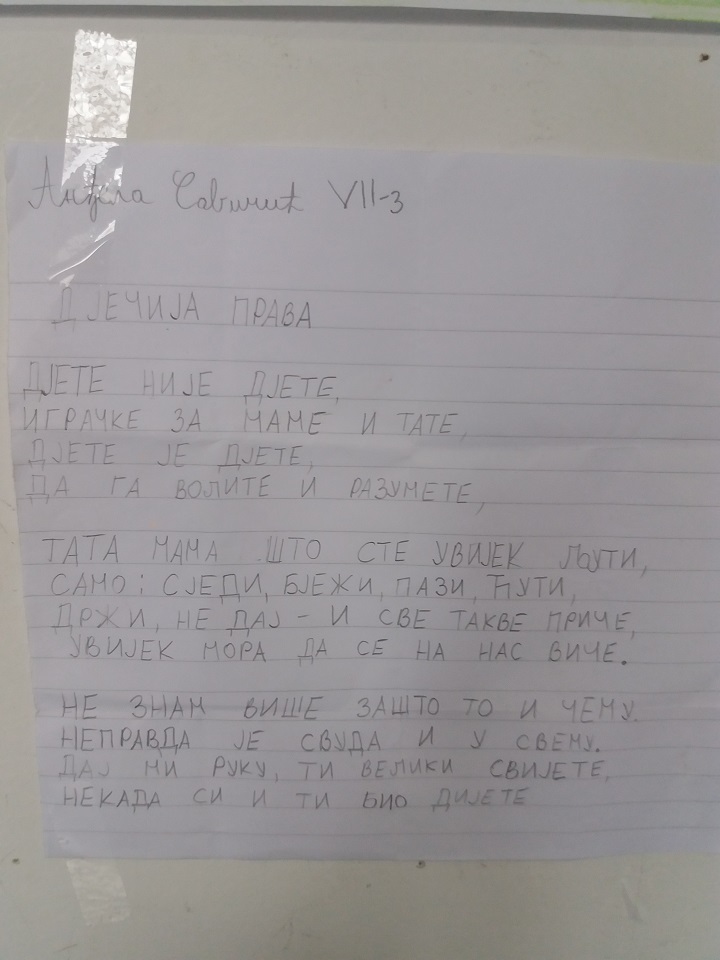 Анђела Савичић VII-3
ДЈЕЧИЈА ПРАВА
ДЈЕТЕ НИЈЕ ДЈЕТЕ,
ИГРАЧКЕ ЗА МАМЕ И ТАТЕ,
ДЈЕТЕ ЈЕ ДЈЕТЕ,
ДА ГА ВОЛИТЕ И РАЗУМЕТЕ,
ТАТА МАМА ШТО СТЕ УВИЈЕК ЉУТИ,
САМО: СЈЕДИ, БЈЕЖИ, ПАЗИ, ЋУТИ,
ДРЖИ, НЕ ДАЈ - И СВЕ ТАКВЕ ПРИЧЕ,
УВИЈЕК МОРА ДА СЕ НА НАС ВИЧЕ.
НЕ ЗНАМ ВИШЕ ЗАШТО ТО И ЧЕМУ.
НЕПРАВДА ЈЕ СВУДА И У СВЕМУ.
ДАЈ МИ РУКУ, ТИ ВЕЛИКИ СВИЈЕТЕ,
НЕКАДА СИ И ТИ БИО ДИЈЕТЕ